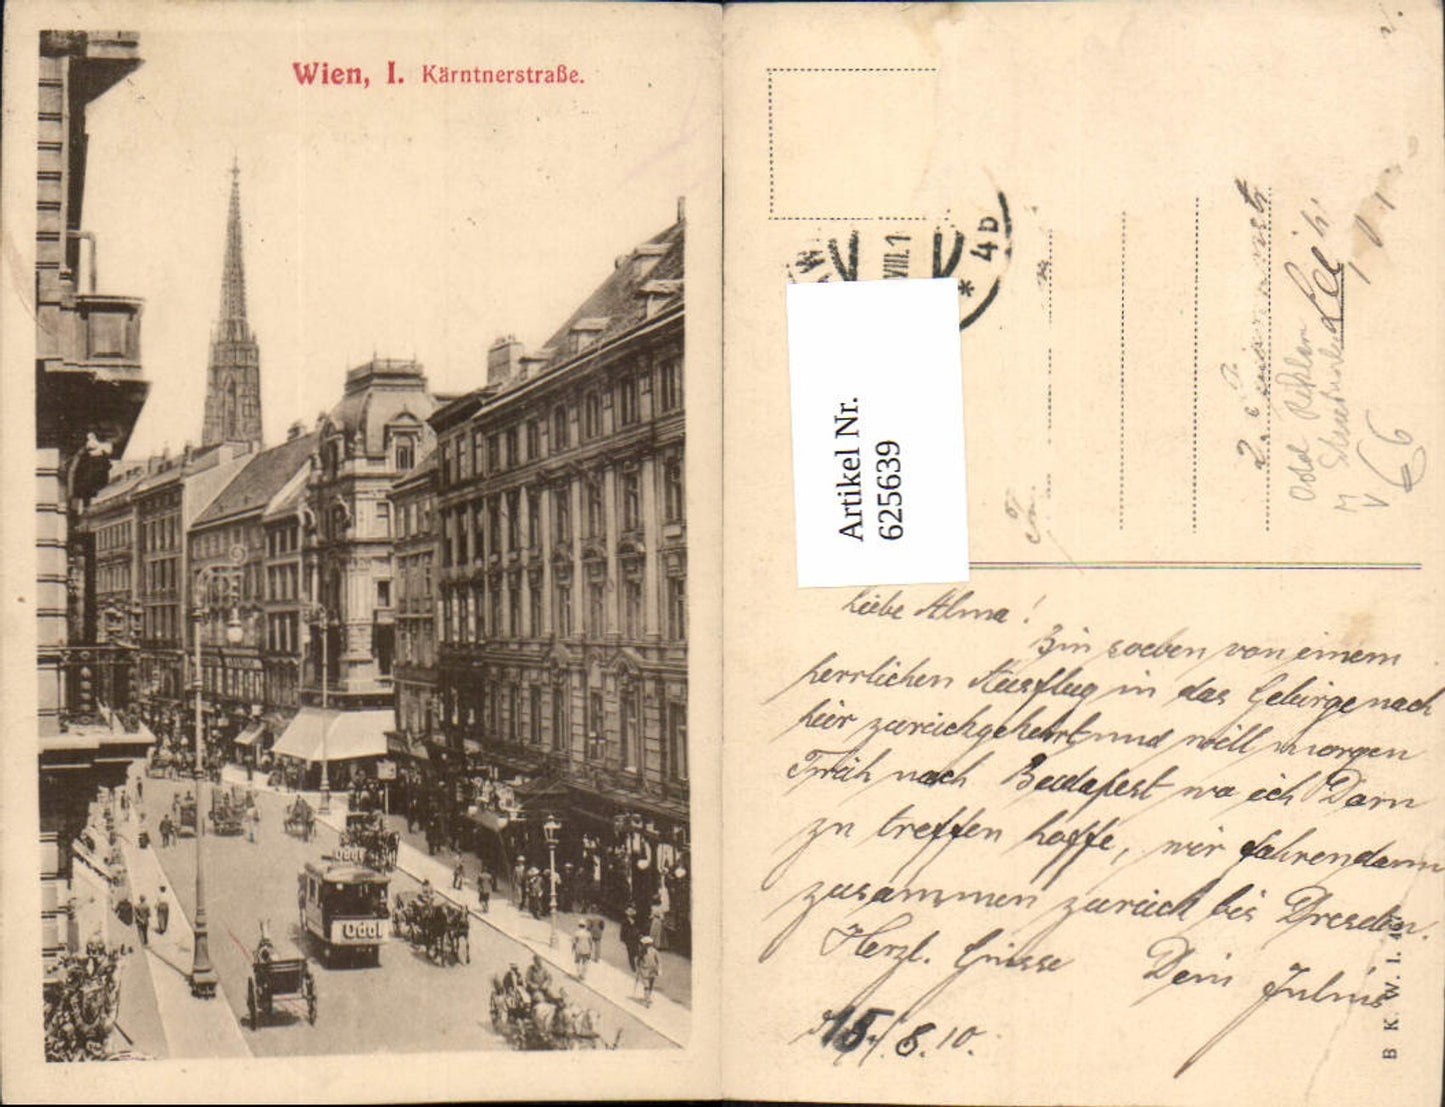 Wien, I. Kärntnerstraße.
Odol
Odol
VIII.1
* 4b
Artikel Nr.
625639
Odol Reklam
V 66
Liebe Alma!
Bin soeben von einem
herrlichen Ausflug in das Gebirge nach
hier zurückgekehrt und will morgen
Früh nach Budapest wo ich Dorn
zu treffen hoffe, wir fahren dann
zusammen zurück bis Dresden.
Herzl. Grüsse Dein Julius
15. 8. 10.
B. K. W. I.